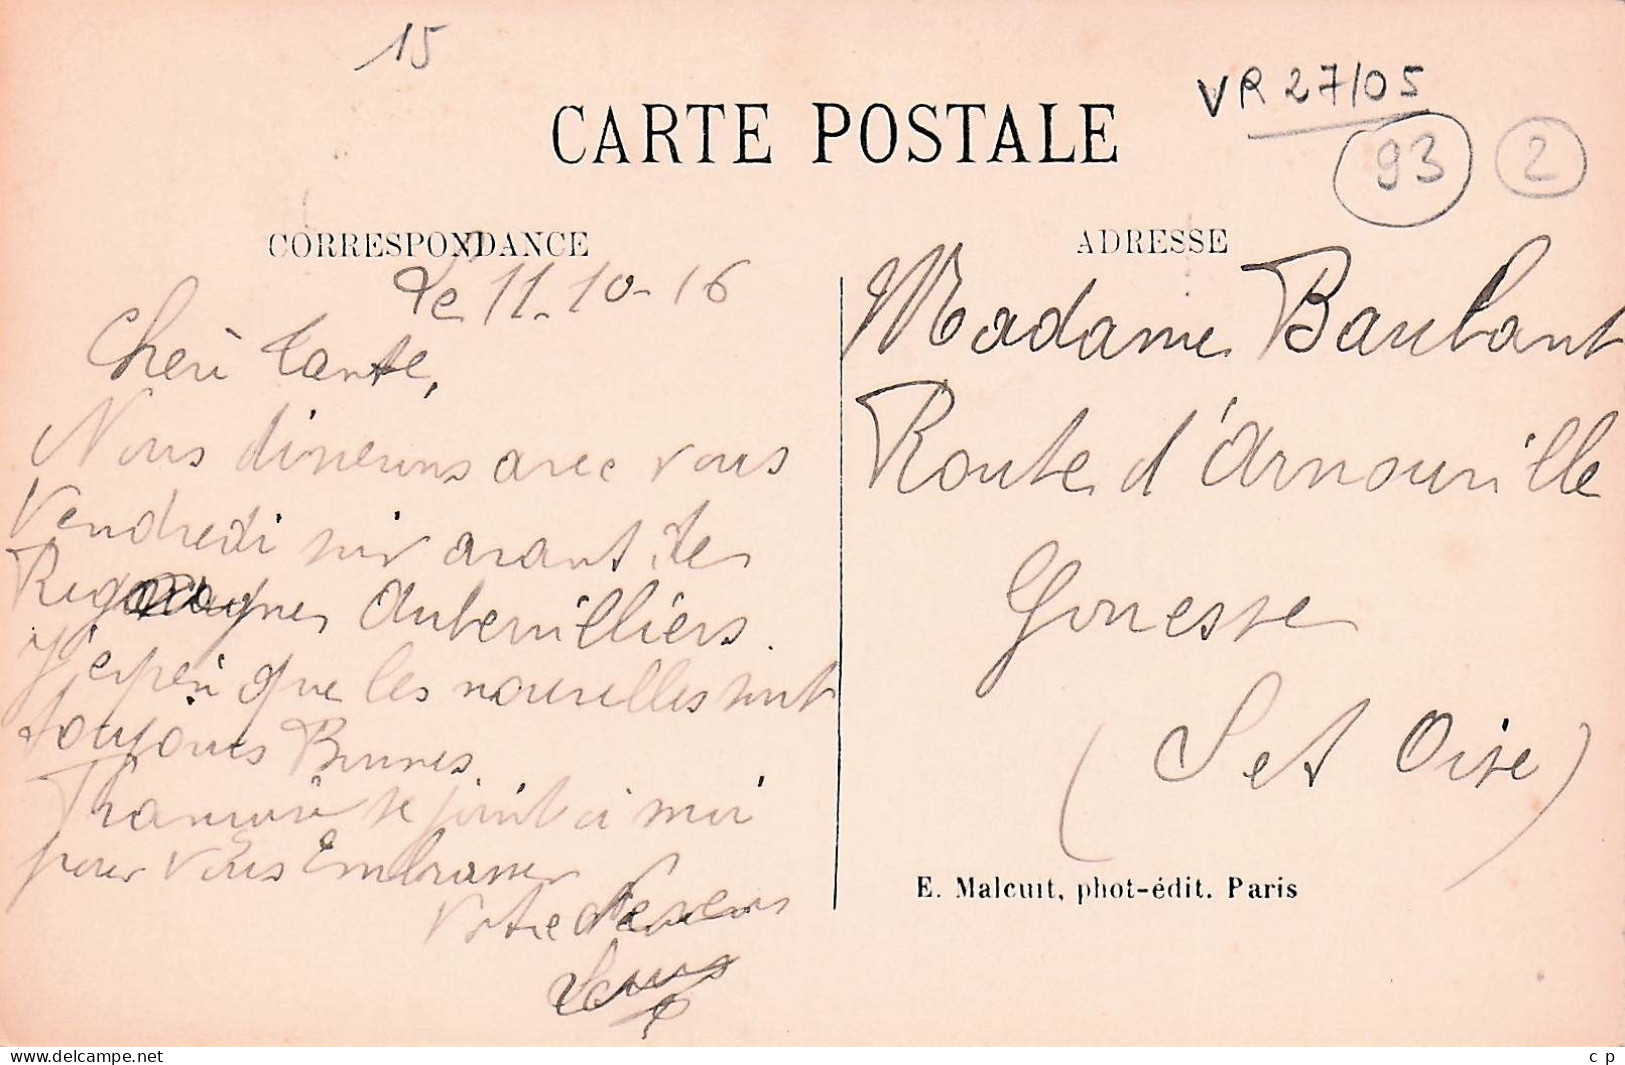 15
VR 27/05
93
2
CARTE POSTALE
CORRESPONDANCE
Le 11.10-16
Cheri Tante,
Nous dinerons avec vous
Vendredi soir avant de
Aubervilliers.
J'esper que les nouvelles sont
toujours Bonnes.
se joint à moi
pour Vous Embrasser
Votre
ADRESSE
Madame Baulant
Route d'Arnouville
Gonesse
(S et Oise)
E. Malcuit, phot-édit. Paris
delcampe.net
c p